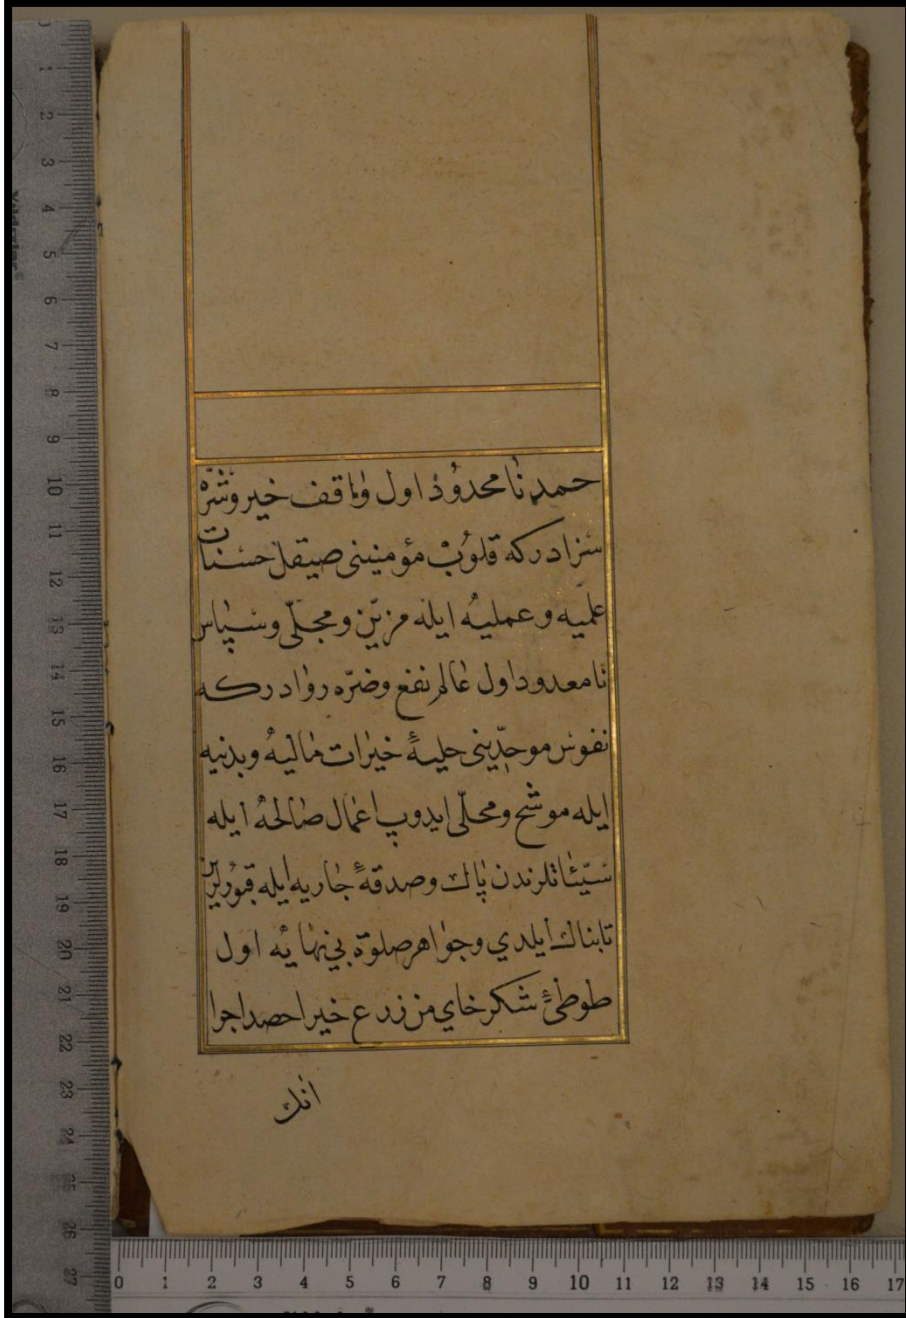 حمد نا محدود اول واقف خیر و شرّه
سزادر که قلوب مؤمنینی صیقل حسنات
علمیّه و عملیه ایله مزیّن و مجلّی و سپاس
نا معدود اول عالم نفع و ضرّه روادر که
نفوس موحدّینی حلیهٔ خیرات مالیه و بدنیه
ایله موشح و محلّی ایدوپ اعمال صالحه ایله
سیّئاتلرندن پاك و صدقهٔ جاریه ایله قبورلرین
تابناك ایلدي و جواهر صلوة بي نهایه اول
طوطئ شکرخاي من زرع خیرا حصد اجرا
انك
0 1 2 3 4 5 6 7 8 9 10 11 12 13 14 15 16 17
1 2 3 4 5 6 7 8 9 10 11 12 13 14 15 16 17 18 19 20 21 22 23 24 25 26 27